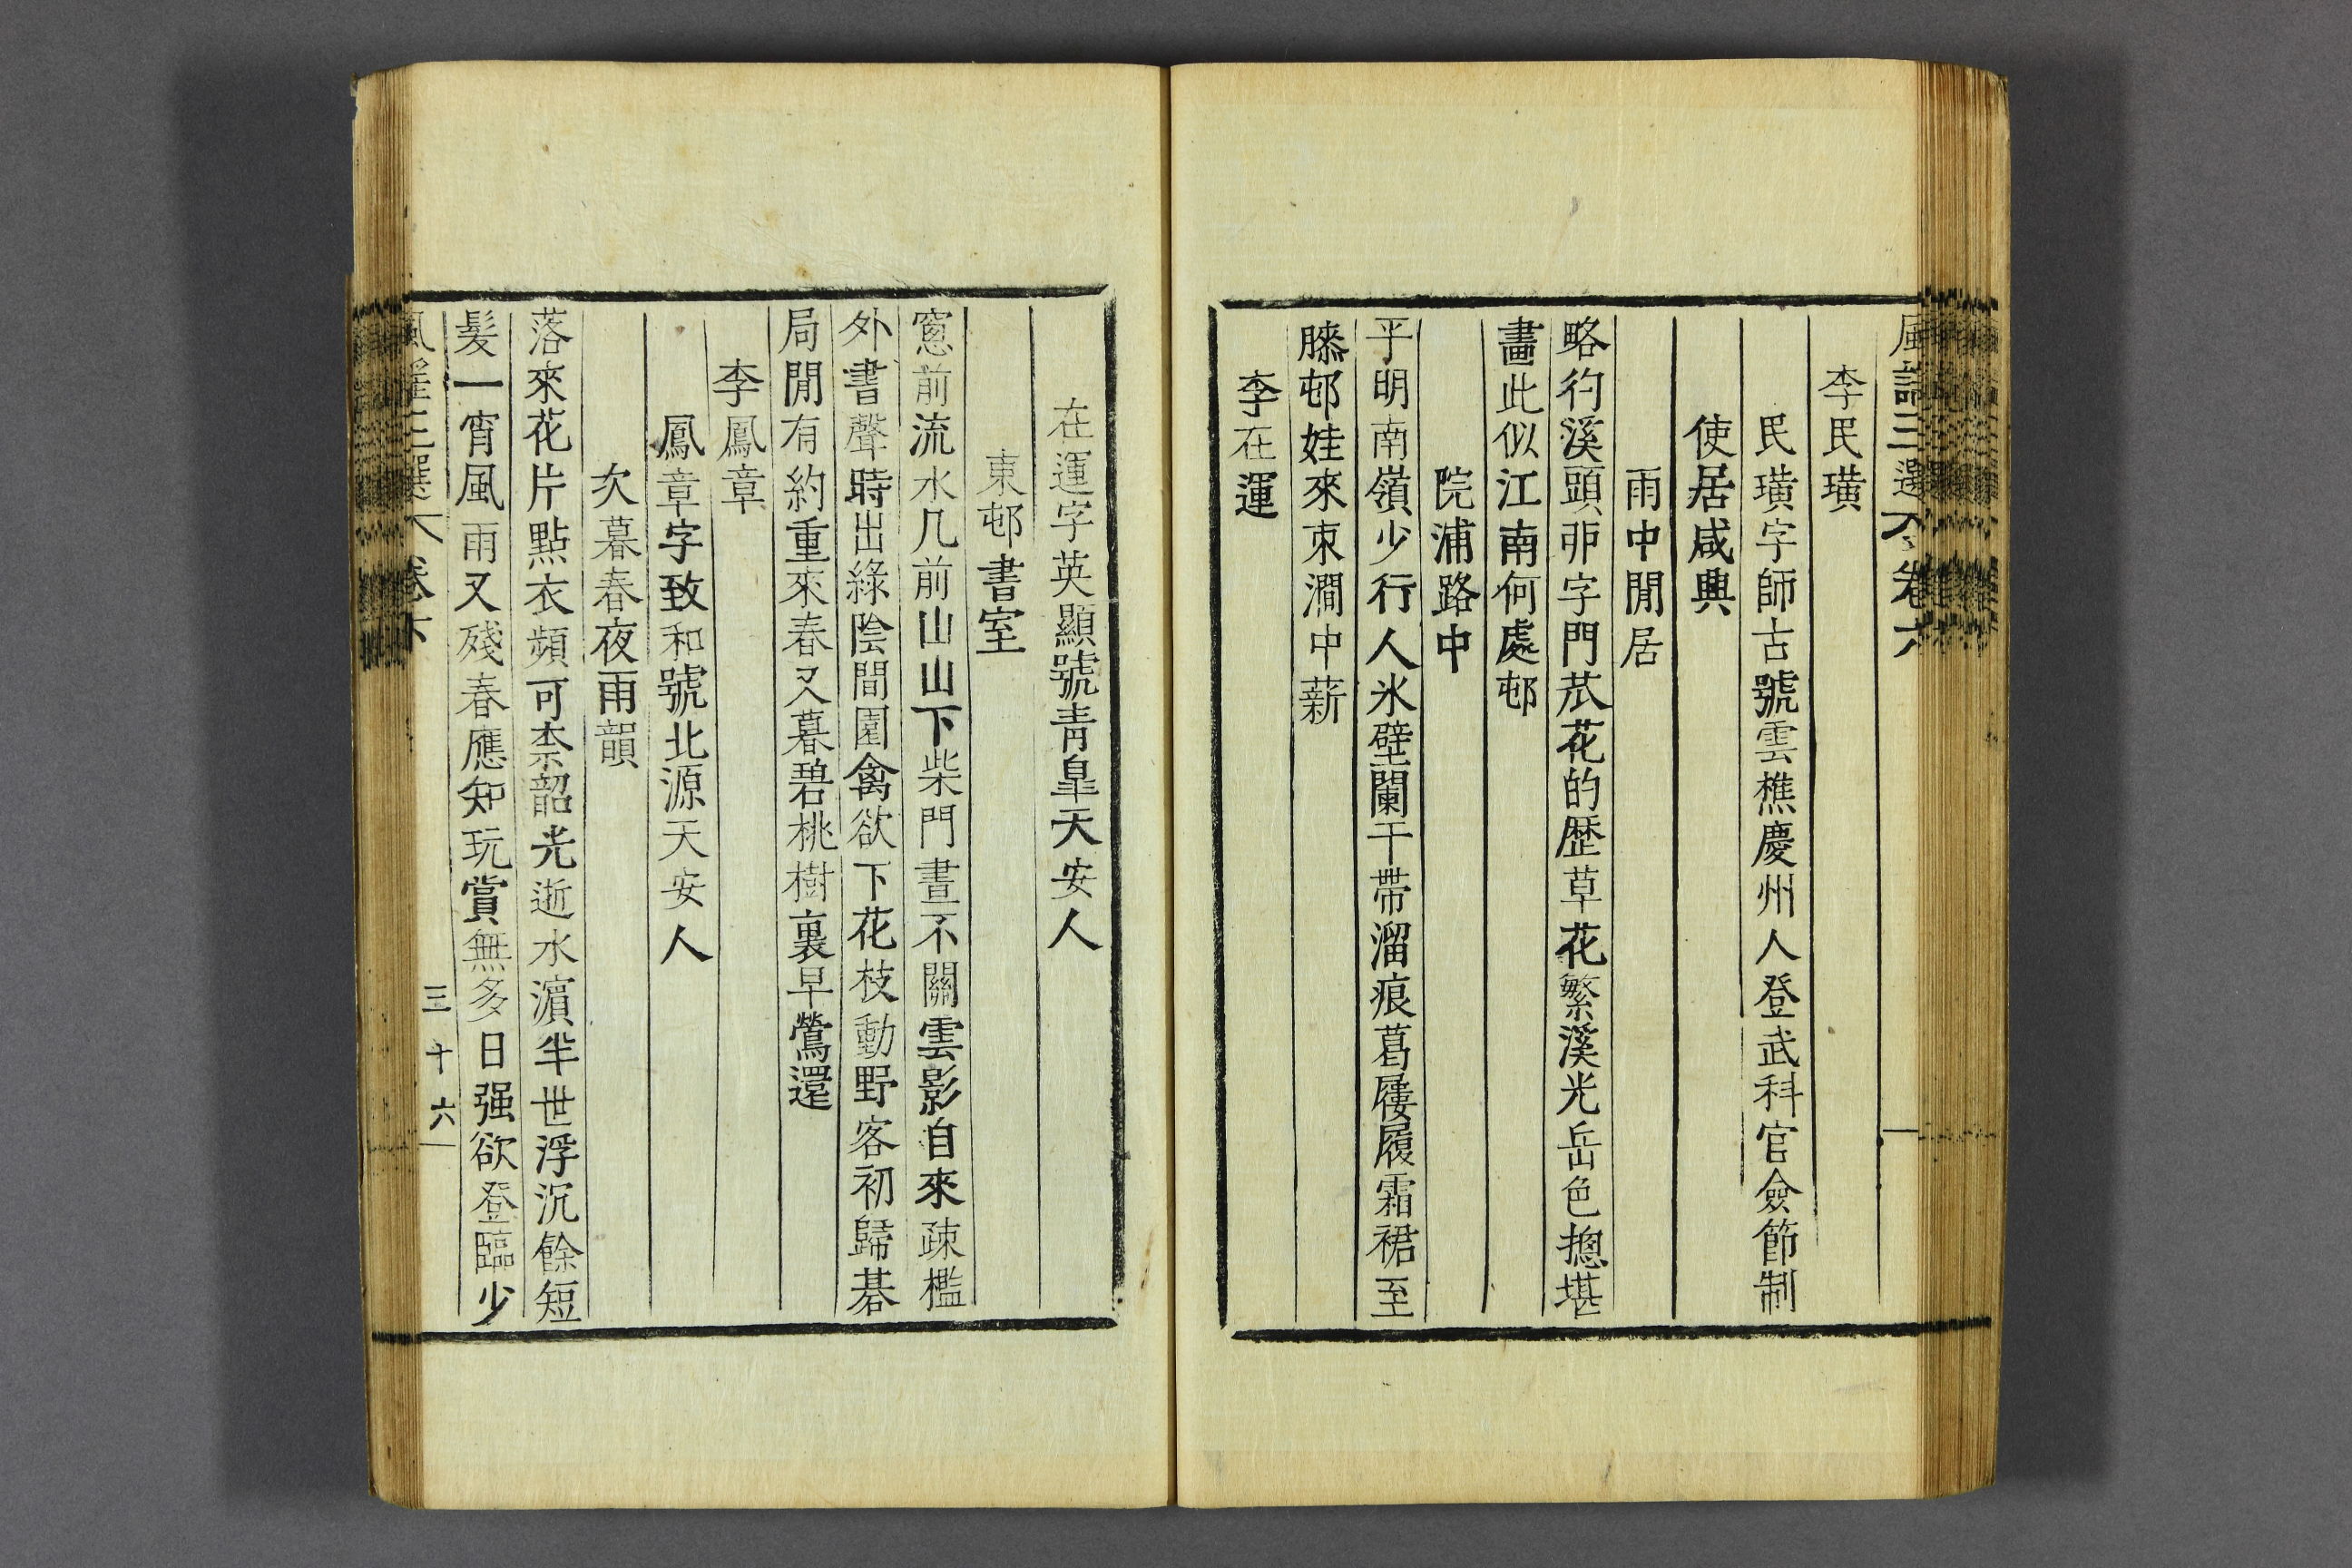 風謠三選 卷六
李民璜
民璜字師古號雲樵慶州人登武科官僉節制
使居咸興
雨中閒居
略彴溪頭卯字門苽花的歷草花繁溪光岳色摠堪
畵此似江南何處邨
院浦路中
平明南嶺少行人氷壁闌干帶溜痕葛屨履霜裙至
膝邨娃來束澗中薪
李在運
在運字英顯號靑皐天安人
東邨書室
窓前流水几前山山下柴門晝不關雲影自來疎檻
外書聲時出綠陰間園禽欲下花枝動野客初歸碁
局閒有約重來春又暮碧桃樹裏早鶯還
李鳳章
鳳章字致和號北源天安人
次暮春夜雨韻
落來花片點衣頻可柰韶光逝水濵半世浮沉餘短
髮一宵風雨又殘春應知玩賞無多日强欲登臨少
風謠三選 卷六
三十六